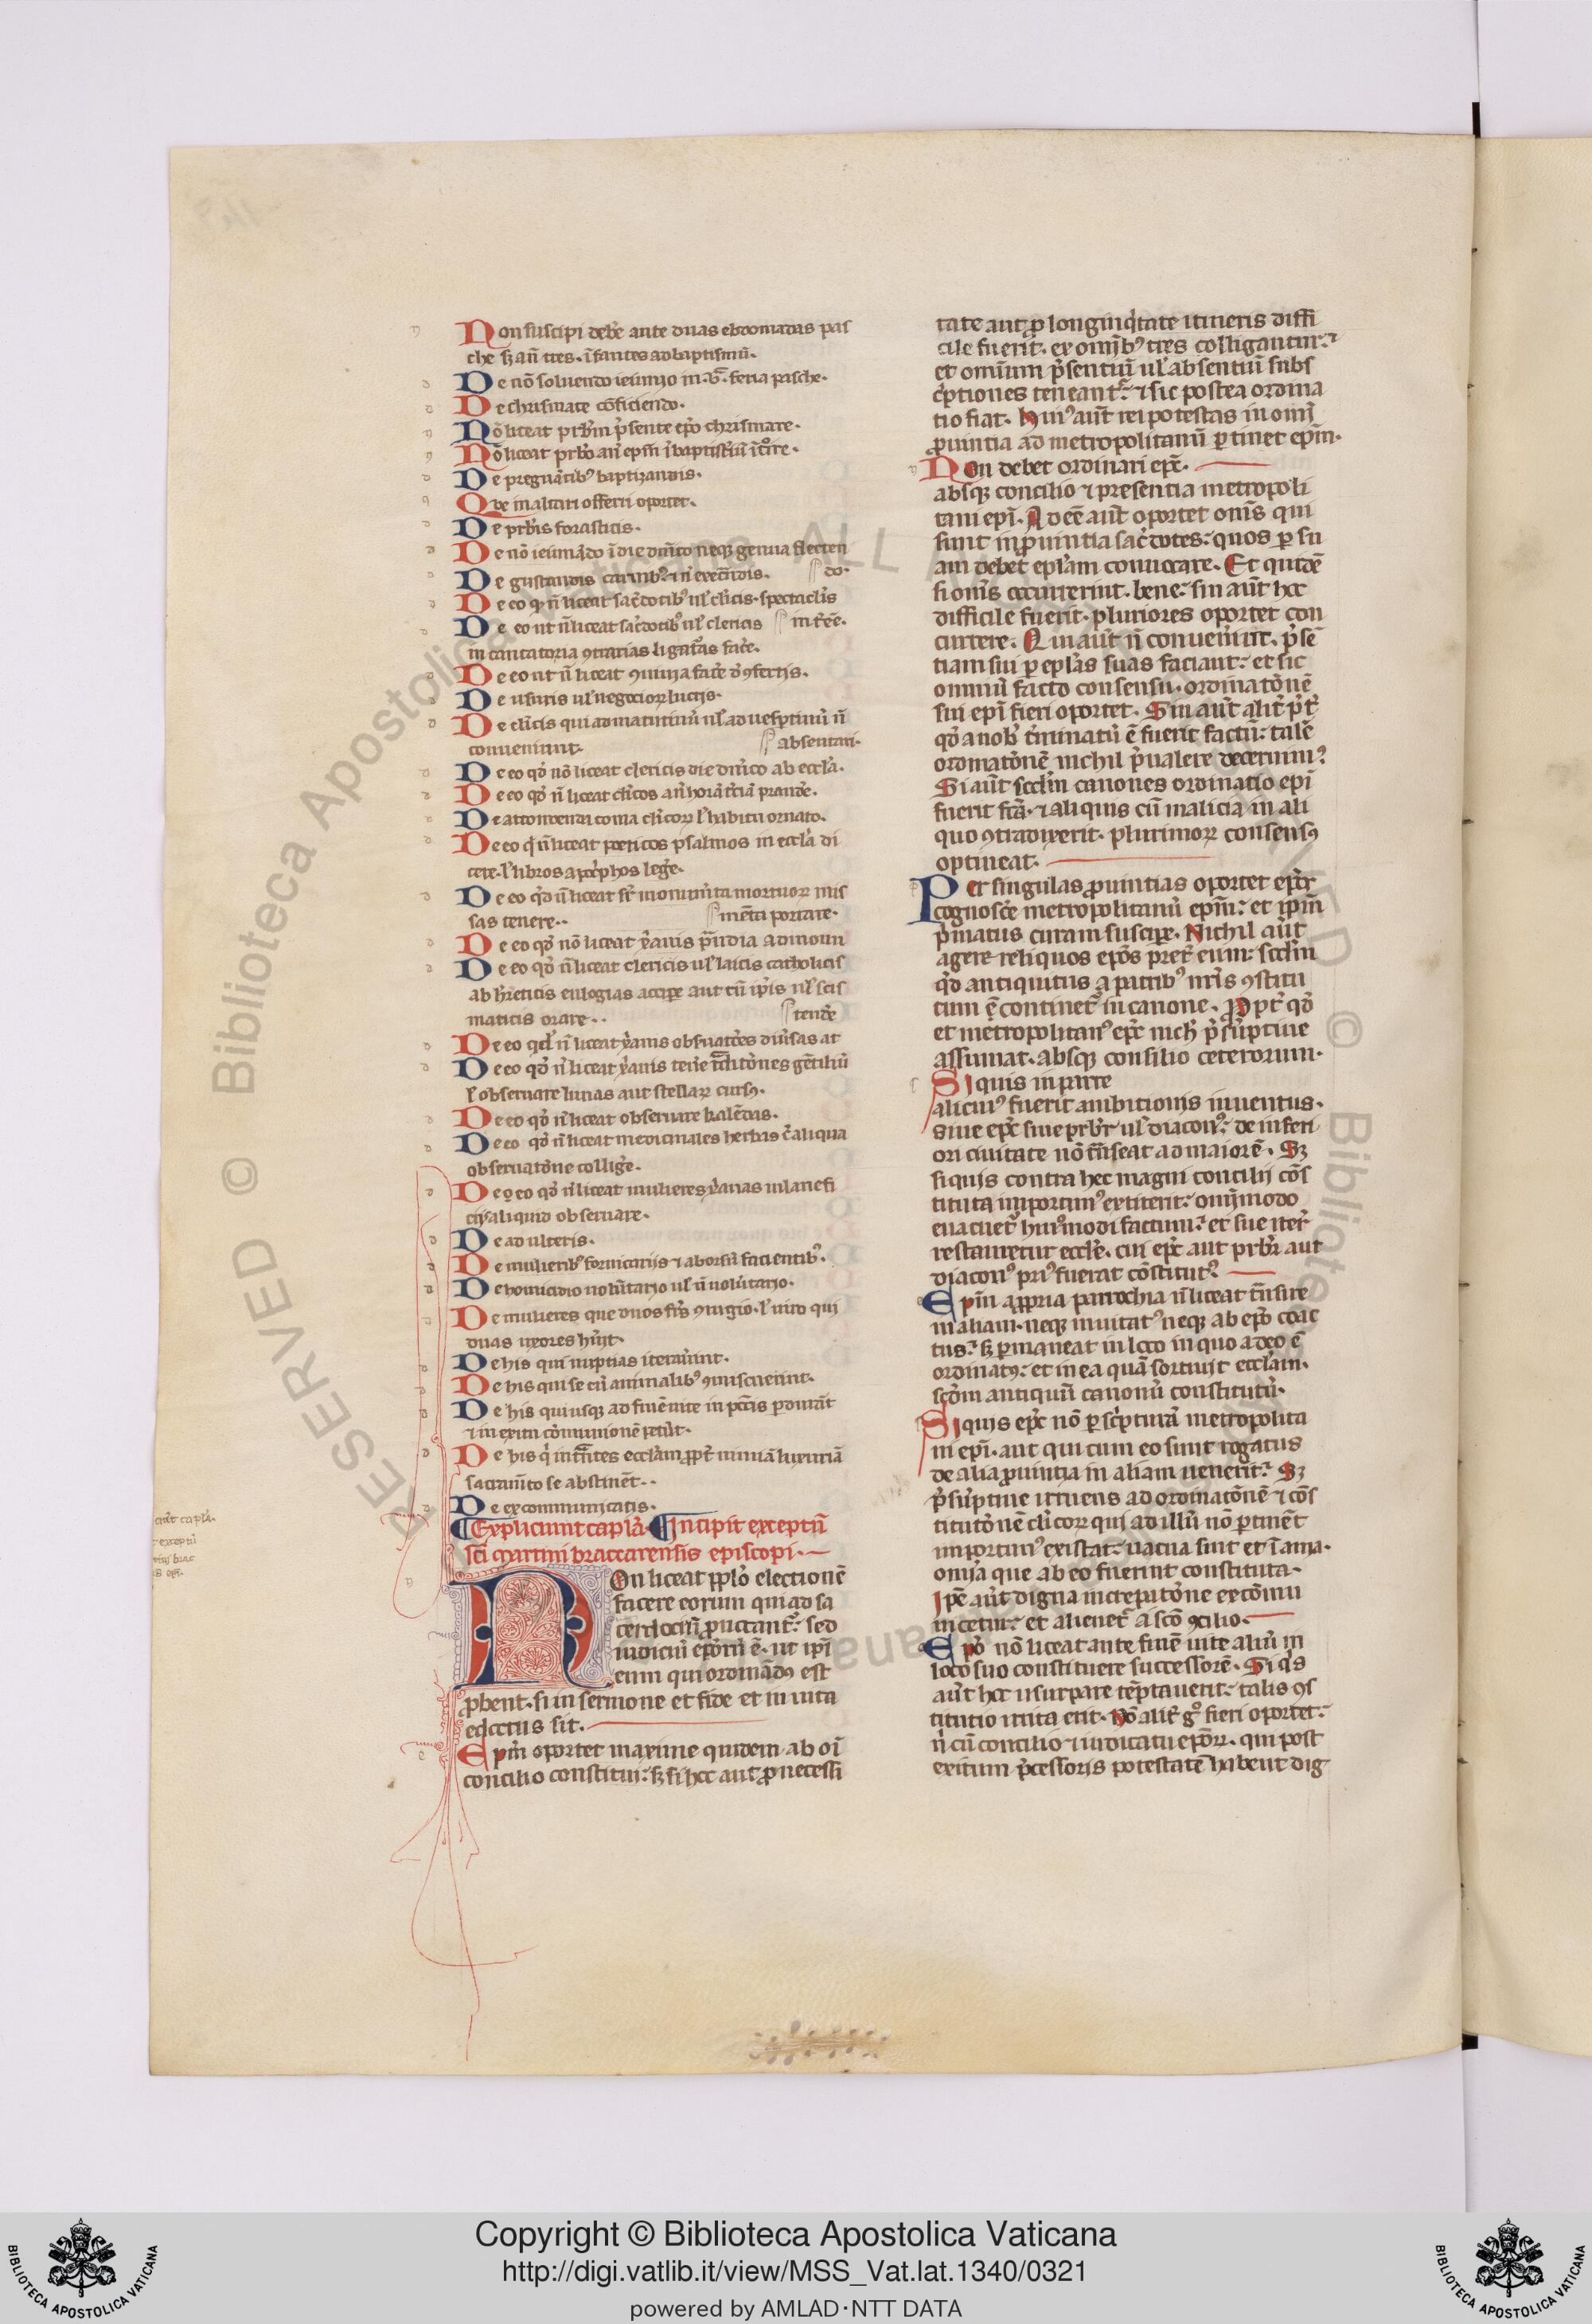 Non suscipi debe᷒ ante duas ebdomadas pas
che ſꝫ añ tres. ĩfantes ad baptismũ.
De nõ soluendo ieiunio in .v. feria pasche.
De chrismate cõficiendo.
Nõ liceat prbr̃m p̃sente ep̃o chrismare.
Nõ liceat prbr̃o añ ep̃m ĩ baptist'iũ ĩt°ire.
De pregnãtibꝰ baptizandis.
Que in altari offerri oportet.
De prbr̃is forasticis.
De nõ ieiunãdo ĩ die dñico neqꝫ genua flecten
do.
De gustandis carnibꝰ ⁊ ñ execrãdis.
De eo qđ ñ liceat sac̃dotibꝰ ul̃ cl̃icis. spectaclĩs
in t̃ee᷒.
De eo ut ñ liceat sac̃dotibꝰ ul̃ clericis
in cantatoria ꝯtrarias ligat᷒as face᷒.
De eo ut ñ liceat ꝯuiuia face᷒ đ ꝯfertis.
De usuris ul̃ negocioꝝ lucris.
De cl̃icis qui ad matutinũ ul̃ ad uesp̱tinũ ñ
conueniunt.
absentari.
De eo qđ nõ liceat clericis die dñico ab eccl̃a.
De eo qđ ñ liceat cl̃icos añ horã t̃ciã prande᷒.
De attondenda coma cl̃icoꝝ ⁊ habitu ornato.
De eo qđ ñ liceat poeticos psalmos in eccl̃a di
cere. ul̃ libros apoc̃phos lege᷒.
De eo qđ ñ liceat sr̃ monum̃ta mortuoꝝ mis
sas tenere..
mẽta portare.
De eo qđ nõ liceat xp̃ianis prãdia ad monu
De eo qđ ñ liceat clericis ul̃ laicis catholicis
ab h̃eticis eulogias accipe᷒ aut cũ ip̃is ul̃ scis
maticis orare..
tende᷒
De eo qđ ñ liceat xp̃ianis obsuatões diũsas at
De eo qđ ñ liceat xp̃ianis tene᷒ t̃ditõnes gẽtiliũ
ul̃ obseruare lunas aut stellaꝝ cursꝰ.
De eo qđ ñ liceat obseruare kalẽdas.
De eo qđ ñ liceat medicinales herbas c̃ aliqua
obseruatõne collige᷒.
De eo qđ ñ liceat mulieres xp̃ianas in lanefi
ciis aliquid obseruare.
De adulteris.
De mulieribꝰ fornicariis ⁊ aborsũ facientibꝰ.
De homicidio uolũtario ul̃ ñ uolũtario.
De mulieres que duos fr̃es ꝯiugio. ul̃ uiro qui
duas uxores hũit.
De his qui nuptias iterauĩnt.
De his qui se cũ animalibꝰ ꝯmiscuerint.
De his qui usqꝫ ad finẽ uite in pccĩs ꝑdurãt
⁊ in exitu cõmunionẽ petũt.
De his q̃ int̃ntes eccl̃am ꝓpt̃ nimiã luxuriã
sacram̃to se abstinẽt..
De excommunicatis.
Expliciunt capl̃a. Incipit exceptũ
sc̃i martini braccarensis episcopi.
Non liceat ppl̃o electionẽ
facere eorum qui ad sa
cerdociũ ꝓuocantr̃. sed
iudiciũ ep̃orũ ẽ. ut ip̃i
eum qui ordinãdꝰ est
ꝓbent. si in sermone et fide et in uita
edoctus sit.
Ep̃m oportet maxime quidem ab oĩ
concilio constitui. ſꝫ si hoc aut ꝓ necessi
tate aut ꝓ longinq̃tate itineris diffi
cile fuerit. ex omĩbꝰ tres colligantur.
et omnium p̃sentiũ ul̃ absentiũ subs
c̃ptiones teneantr̃. ⁊ sic postea ordina
tio fiat. Huiꝰ aut̃ rei potestas in omĩ
ꝓuintia ad metropolitanũ ꝑtinet ep̃m.
Non debet ordinari ep̃c.
absqꝫ concilio ⁊ presentia metropoli
tani ep̃i. Adeẽ aut̃ oportet omĩs qui
sunt in ꝓuintia sac̃dotes. quos ꝑ su
am debet ep̃lam conuocare. Et quidẽ
si omĩs occurrerint. bene. sin aut̃ hoc
difficile fuerit. pluriores oportet con
currere. Qui aut̃ ñ conuenerint. p̃sẽ
tiam sui ꝑ epl̃as suas faciant. et sic
omniũ facto consensu. ordinatõnẽ
sui ep̃i fieri oportet. Sin aut̃ alit̃ p̃t̃
qđ a nob̃ t̃minatũ ẽ fuerit factũ. talẽ
ordinatõnẽ nichil p̃ualere decernimꝰ.
Si aut̃ scdm̃ canones ordinatio ep̃i
fuerit fcã. ⁊ aliquis cũ malicia in ali
quo ꝯtradixerit. plurimoꝝ consensꝰ
optineat.
Per singulas ꝓuintias oportet ep̃os
cognosce᷒ metropolitanũ ep̃m. et ip̃m
p̃matus curam suscipe᷒. Nichil aut̃
agere reliquos ep̃os pret̃ eum. scdm̃
qđ antiquitus a patribꝰ nr̃is ꝯstitu
tum ẽ continetr̃ in canone. ꝓpt̃ qđ
et metropolitanꝰ ep̃c nich̃ p̃sũptiue
assumat. absqꝫ consilio ceterorum.
Siquis in parte
alicuiꝰ fuerit ambitionis inuentus.
siue ep̃c siue prbr̃ ul̃ diaconꝰ. de inferi
ori ciuitate nõ t̃nseat ad maiorẽ. Sꝫ
si quis contra hec magni concilii cõs
tituta importunꝰ extiterit. omĩmodo
euacuetr̃ huiꝰmodi factum. et sue iter̃
restauretur eccl̃e. cui ep̃c aut prbr̃ aut
diaconꝰ priꝰ fuerat cõstitutꝰ.
Ep̃m a ꝓpria parrochia ñ liceat t̃nsire
in aliam. neqꝫ inuitatꝰ neqꝫ ab ep̃o coac
tus. ſꝫ ꝑmaneat in loco in quo a deo ẽ
ordinatꝰ. et in ea quã sortiuit eccl̃am.
scdõm antiquũ canonũ constitutũ.
Siquis ep̃c nõ ꝑ sc̃pturã metropolita
ni ep̃i. aut qui cum eo sunt rogatus
de alia ꝓuintia in aliam uenerit. Sꝫ
p̃sũptiue irruens ad ordinatõnẽ ⁊ cõs
titutõnẽ cl̃icoꝝ qui ad illũ nõ ꝑtinẽt
importunꝰ existat. uacua sint et ĩania.
omĩa que ab eo fuerint constituta.
Ipẽ aut̃ digna increpatõne excõmu
nicetur. et alienetr̃ a scõ ꝯcilio.
Ep̃o nõ liceat ante finẽ uite aliũ in
loco suo constituere successorẽ. Si q̃s
aut̃ hoc usurpare tẽptauerit. talis ꝯs
titutio irrita erit. Nõ alit̃ g° fieri oportet.
ñ cũ concilio ⁊ iudicatu ep̃oꝝ. qui post
exitum p̃cessoris potestatẽ habent dig
Copyright © Biblioteca Apostolica Vaticana
http://digi.vatlib.it/view/MSS_Vat.lat.1340/0321
powered by AMLAD·NTT DATA
BIBLIOTECA APOSTOLICA VATICANA
BIBLIOTECA APOSTOLICA VATICANA